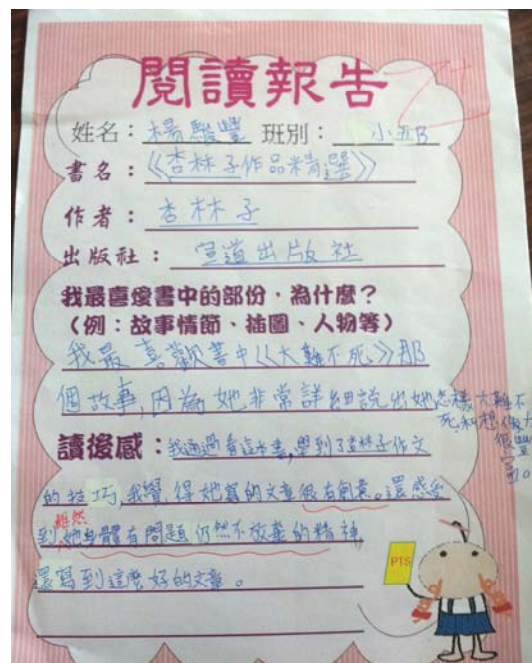 閱讀報告
姓名：楊駿豐 班別：小五B
書名：《杏林子作品精選》
作者：杏林子
出版社：宣道出版社
我最喜愛書中的部份，為什麼？
（例：故事情節、插圖、人物等）
我最喜歡書中《大難不死》那
個故事,因為她非常詳細說出她怎樣大難不
死,和想像力
很豐
富。
讀後感：我通過看這本書,學到了杏林子作文
的技巧,我覺得她寫的文章很有創意。還感受
到雖然她身體有問題仍然不放棄的精神,
還寫到這麼好的文章。
PTS